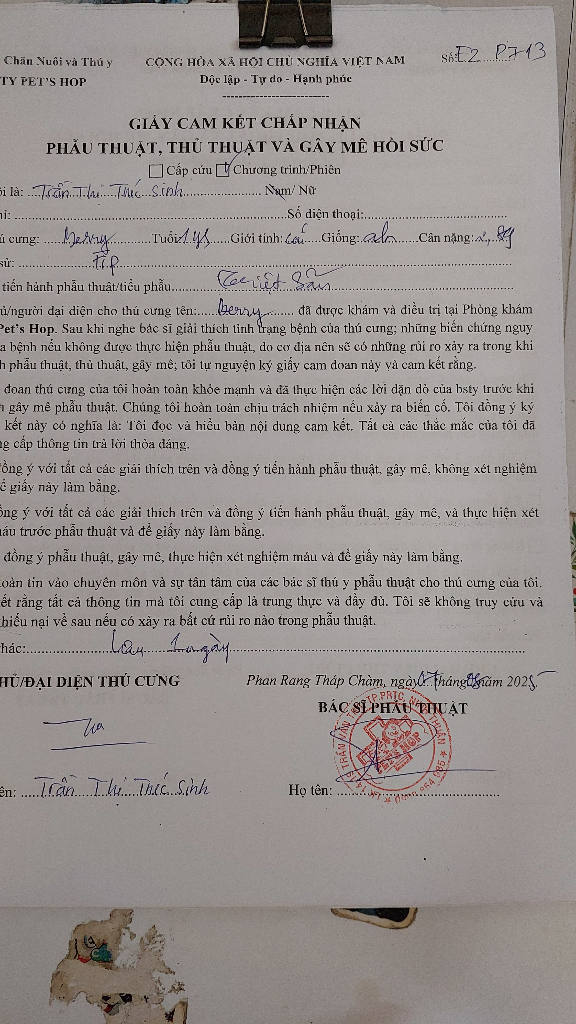 Chăn Nuôi và Thú y CỘNG HÒA XÃ HỘI CHỦ NGHĨA VIỆT NAM Số: E2 P713
TY PET'S HOP Độc lập - Tự do - Hạnh phúc
GIẤY CAM KẾT CHẤP NHẬN
PHẪU THUẬT, THỦ THUẬT VÀ GÂY MÊ HỒI SỨC
Cấp cứu Chương trình/Phiên
i là: Trần Thị Thúc Sinh Nam/ Nữ
hỉ: Số điện thoại:
ú cưng: Berry Tuổi: 1y5 Giới tính: cái Giống: aln Cân nặng:
sử: FIP
tiến hành phẫu thuật/tiểu phẫu Triệt Sản
ủ/người đại diện cho thú cưng tên: Berry đã được khám và điều trị tại Phòng khám
Pet's Hop. Sau khi nghe bác sĩ giải thích tình trạng bệnh của thú cưng; những biến chứng nguy
a bệnh nếu không được thực hiện phẫu thuật, do cơ địa nên sẽ có những rủi ro xảy ra trong khi
h phẫu thuật, thủ thuật, gây mê; tôi tự nguyện ký giấy cam đoan này và cam kết rằng.
đoan thú cưng của tôi hoàn toàn khỏe mạnh và đã thực hiện các lời dặn dò của bsty trước khi
n gây mê phẫu thuật. Chúng tôi hoàn toàn chịu trách nhiệm nếu xảy ra biến cố. Tôi đồng ý ký
kết này có nghĩa là: Tôi đọc và hiểu bản nội dung cam kết. Tất cả các thắc mắc của tôi đã
ng cấp thông tin trả lời thỏa đáng.
ồng ý với tất cả các giải thích trên và đồng ý tiến hành phẫu thuật, gây mê, không xét nghiệm
ể giấy này làm bằng.
ồng ý với tất cả các giải thích trên và đồng ý tiến hành phẫu thuật, gây mê, và thực hiện xét
áu trước phẫu thuật và để giấy này làm bằng.
đồng ý phẫu thuật, gây mê, thực hiện xét nghiệm máu và để giấy này làm bằng.
oàn tin vào chuyên môn và sự tận tâm của các bác sĩ thú y phẫu thuật cho thú cưng của tôi.
ết rằng tất cả thông tin mà tôi cung cấp là trung thực và đầy đủ. Tôi sẽ không truy cứu và
hiếu nại về sau nếu có xảy ra bất cứ rủi ro nào trong phẫu thuật.
hác: Lưu 1 ngày
HỦ/ĐẠI DIỆN THÚ CƯNG Phan Rang Tháp Chàm, ngày 07 tháng 08 năm 2025
BÁC SĨ PHẪU THUẬT
ên: Trần Thị Thúc Sinh Họ tên: